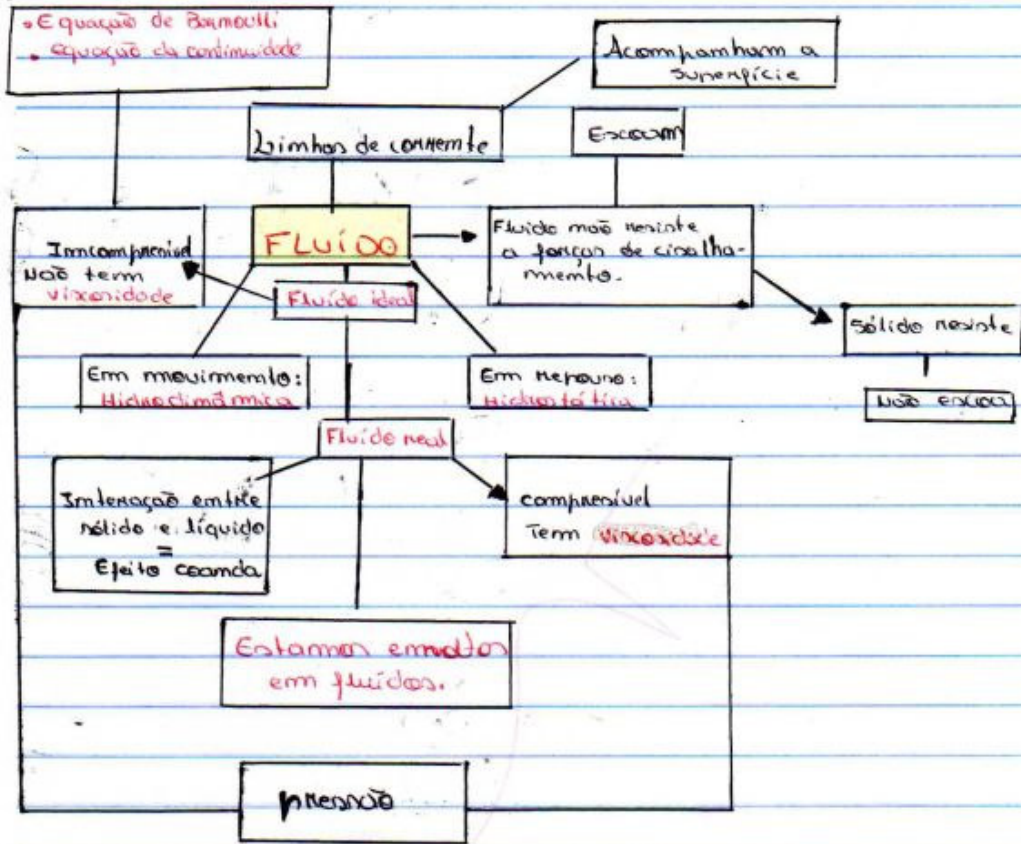 • Equação de Barnoulli
• equação da continuidade
Acompanham a
superfície
Linhas de corrente
Escoam
Imcompresível
Não tem
viscosidade
FLUÍDO
Fluido não resiste
a forças de cisalha-
mento.
Fluído ideal
Sólido resiste
Em movimento:
Hidrodinâmica
Em repouso:
Hidrostática
Não escoa
Fluído real
Interação entre
sólido e líquido
=
Efeito coanda
compresível
Tem viscosidade
Estamos envoltos
em fluídos.
pressão